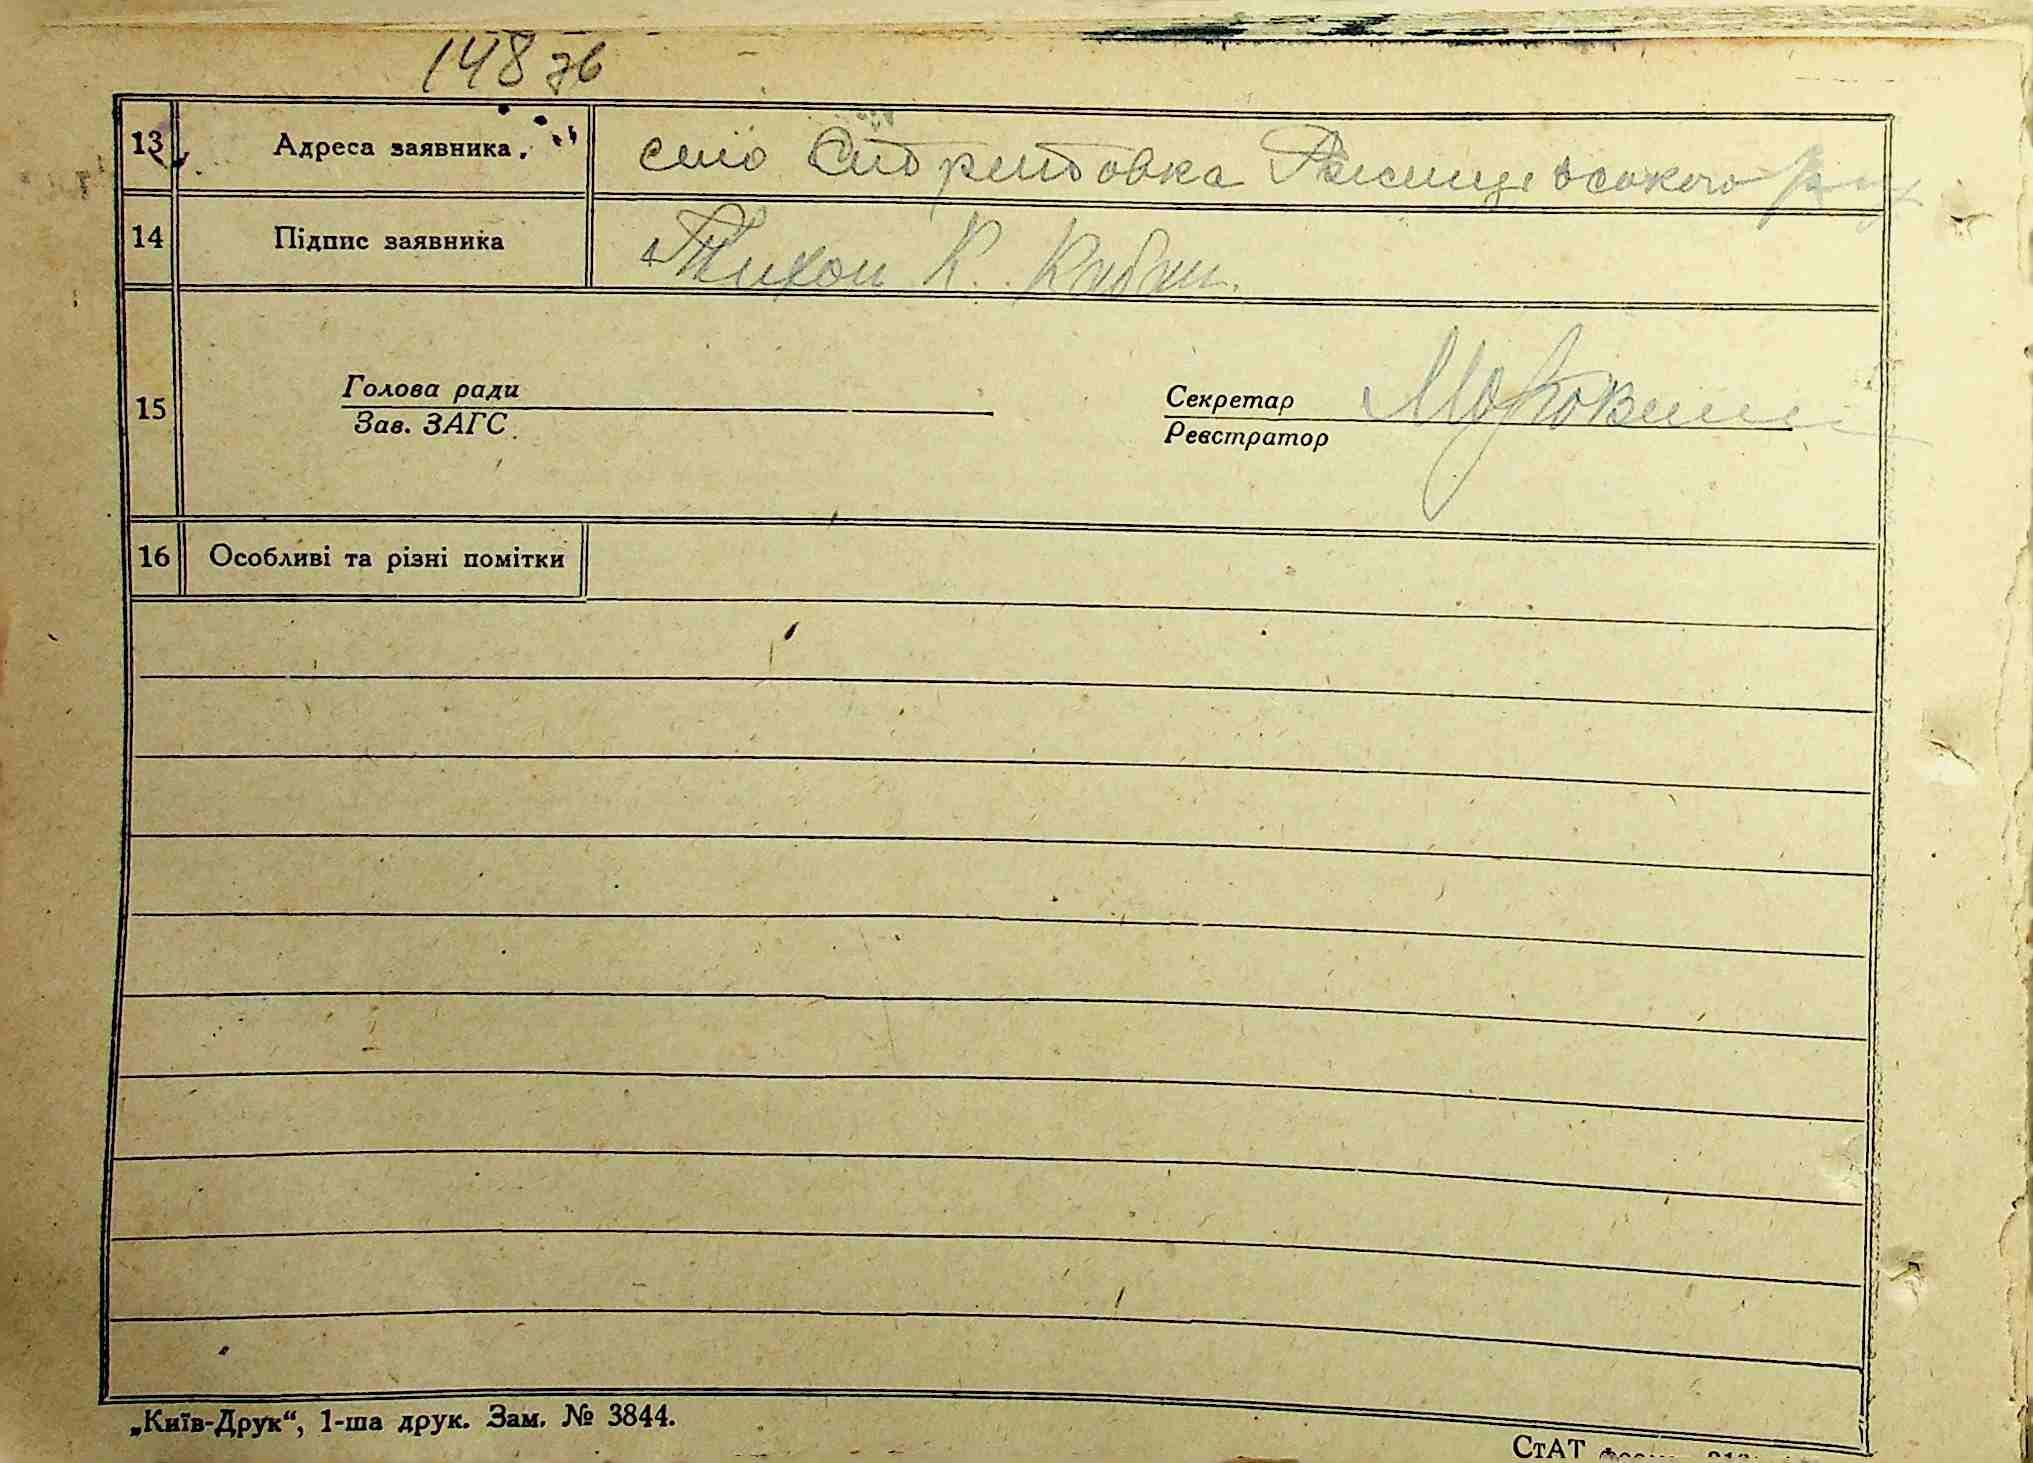 148 зв
13 Адреса заявника. село Стрітовка Ржищівського
14 Підпис заявника Тихон К. Кабан.
15 Голова ради Секретар
Зав. ЗАГС. Реєстратор
16 Особливі та різні помітки
„Київ-Друк“, 1-ша друк. Зам. № 3844.
СтАТ